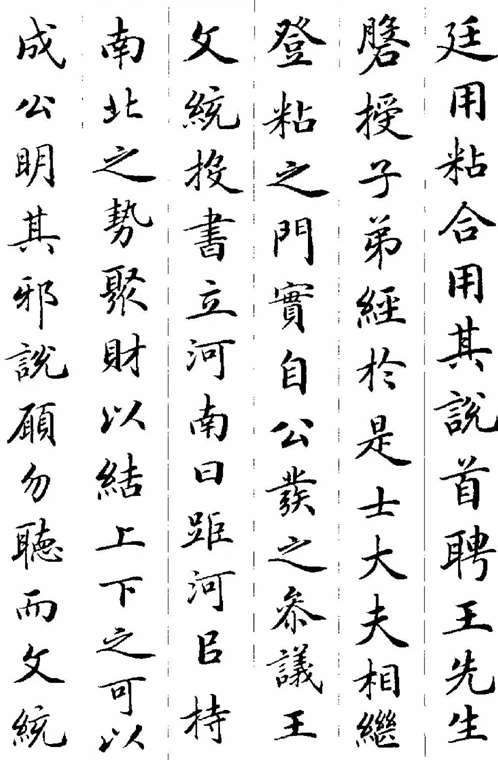 廷用粘合用其說首聘王先生
磐授子弟經於是士大夫相繼
登粘之門實自公發之參議王
文統投書立河南曰距河㠯持
南北之勢聚財以結上下之可以
成公明其邪說願勿聽而文統